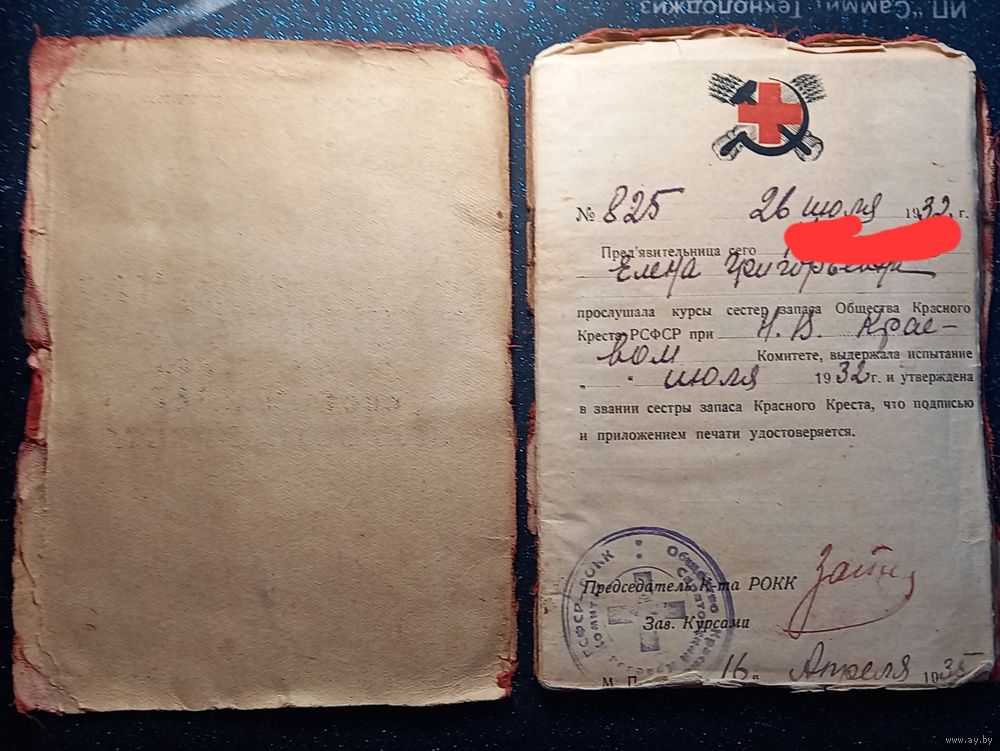 ИП "Саммит Технолоджиз
№ 825 26 июля 1932. г.
Пред'явительница сего
Елена Григорьевна
прослушала курсы сестер запаса Общества Красного
Креста РСФСР при Н. В. Крае-
вом Комитете, выдержала испытание
" " июля 1932 г. и утверждена
в звании сестры запаса Красного Креста, что подписью
и приложением печати удостоверяется.
РСФСР РОКК
Общество Крас
Саратовский
Председатель К-та РОКК
Зав. Курсами
М П 16 " Апреля 1935
www.ay.by